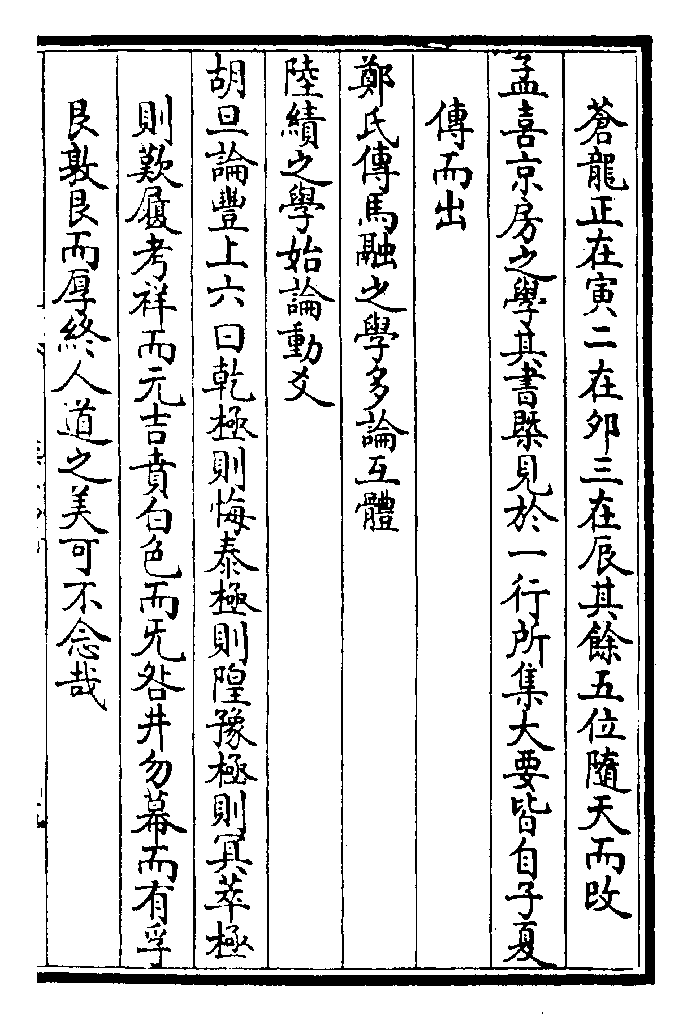 蒼龍正在寅二在夘三在辰其餘五位隨天而改
孟喜京房之學其書槩見於一行所集大要皆自子夏
傳而出
鄭氏傳馬融之學多論互體
陸績之學始論動爻
胡旦論豐上六曰乾極則悔泰極則隍豫極則冥萃極
則歎履考祥而元吉賁白色而旡咎井勿幕而有孚
艮敦艮而厚終人道之美可不念哉